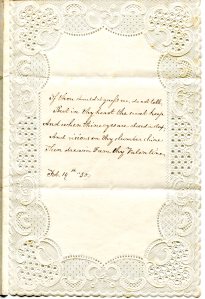 If thou should'st guess me, do not tell,
But in thy heart the secret keep
And when thine eyes are closed in sleep,
And visions on thy slumber shine
Then dream I am thy Valentine.
Feb. 14th '52.